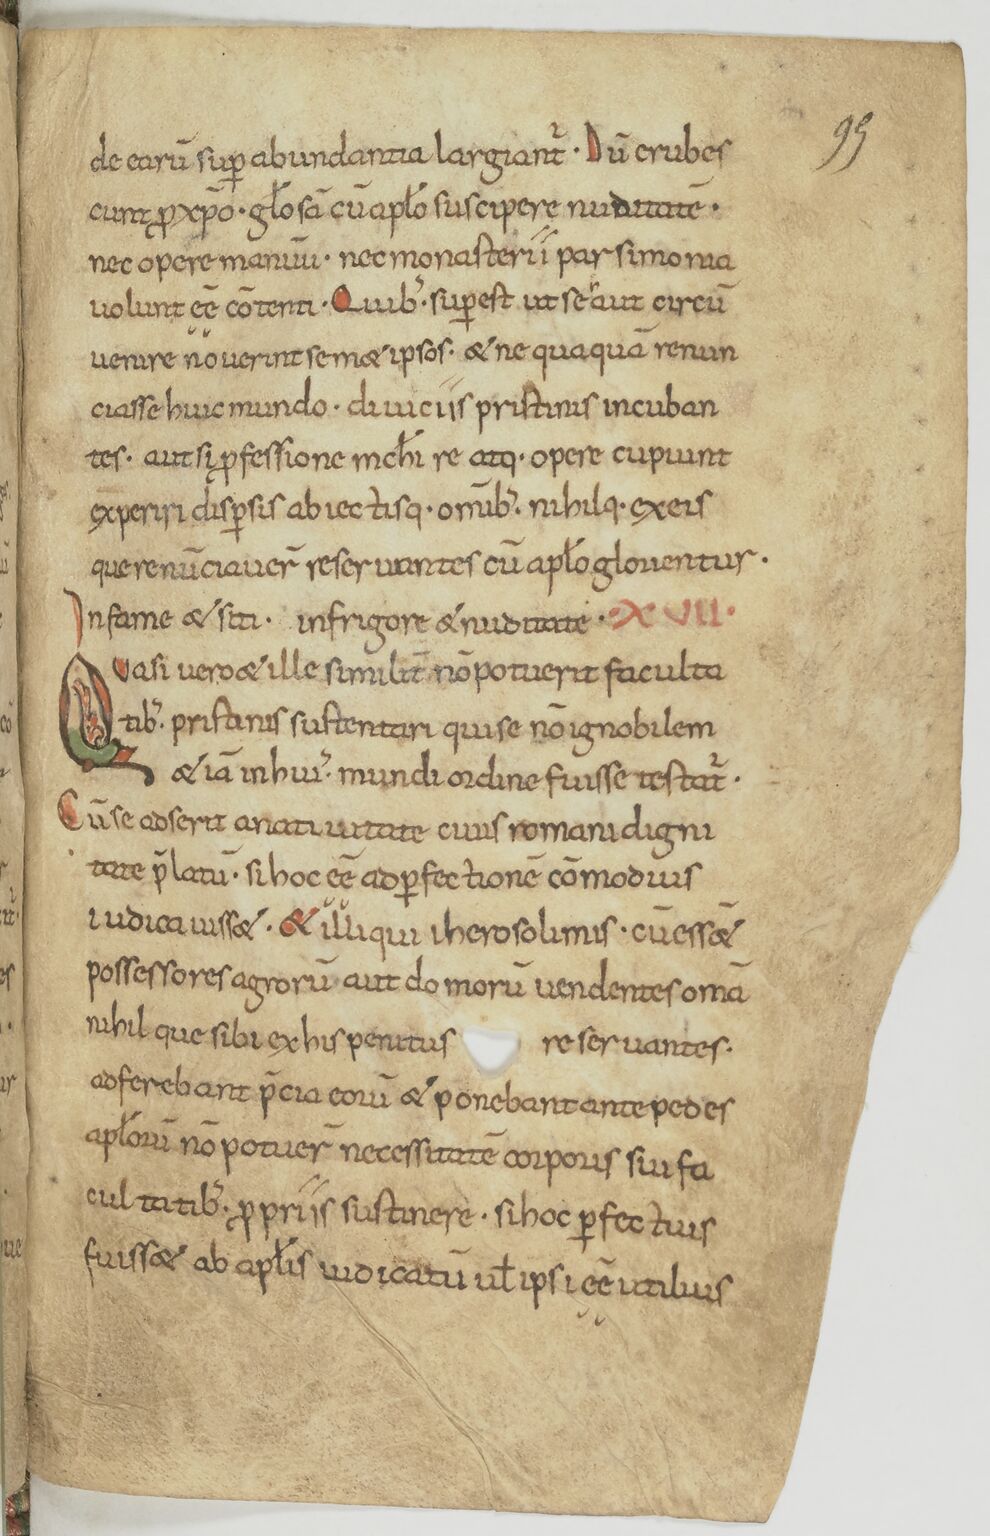 95
de earū sup̱ abundantia largiant᷑ · Dū erubes
cunt ꝓ xp̄o · gło sā cū apło suscipere nuditatē ·
nec opere manuū · nec monasterii parsimonia
uolunt eē cōtenti · Quib᷒ · sup̱est ut se aut circū
uenire nouerint semet ipsos · et nequaquā renun
ciasse huic mundo · diuiciis pristinis incuban
tes · aut si ꝓfessione mch̄i re atq · opere cupiunt
experiri disp̱sis abiectisq · omīb᷒ · nihilq · ex eis
que renūciauer̄ reseruantes cū apło glorientur ·
In fame & siti · in frigore & nuditate · XVII ·
Quasi uero & ille similit̄ nō potuerit faculta
tib᷒ · pristinis sustentari qui se nō ignobilem
& iā in hui᷒ · mundi ordine fuisse testat᷑ ·
Cū se adserit a natiuitate ciuis romani digni
tate p̄latū · si hoc eē ad p̱fectionē cōmodius
iudicauisset · & illi qui iherosolimis · cū essēt
possessores agrorū aut domorū uendentes omā
nihil que sibi ex his penitus reseruantes ·
adferebant p̄cia eorū & ponebant ante pedes
apłorū nō potuer̄ necessitatē corporis sui fa
cultatib᷒ · ꝓpriis sustinere · si hoc p̱fectius
fuisset ab apłis iudicatū uł ipsi eē utilius